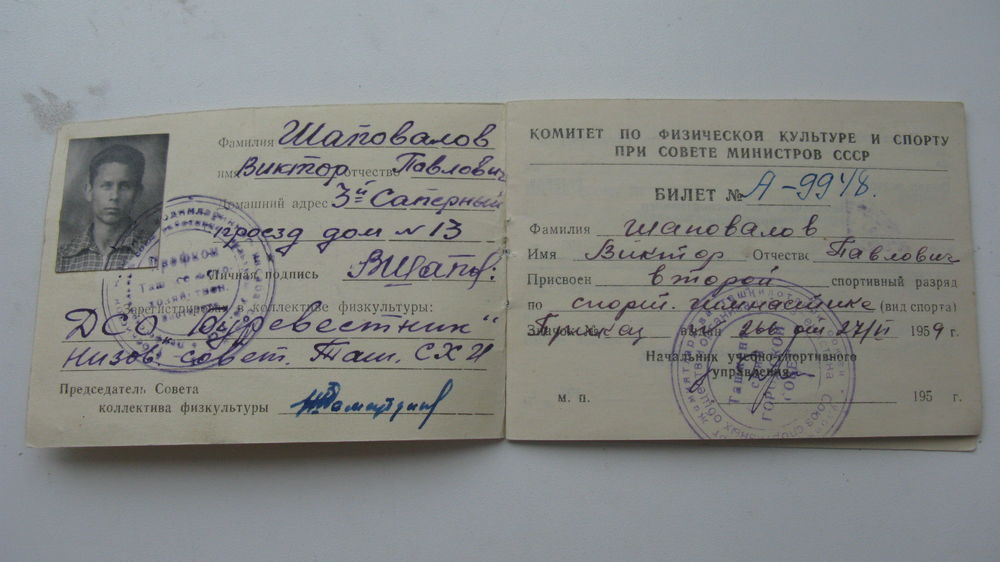 Фамилия Шаповалов
имя Виктор отчество Павлович
Домашний адрес 3й Саперный
проезд дом N 13
Личная подпись
Зарегистрирован в коллективе физкультуры:
ДСО "Буревестник"
низов. совет. Таш. СХИ
Председатель Совета
коллектива физкультуры
КОМИТЕТ ПО ФИЗИЧЕСКОЙ КУЛЬТУРЕ И СПОРТУ
ПРИ СОВЕТЕ МИНИСТРОВ СССР
БИЛЕТ № А-9948.
Фамилия Шаповалов
Имя Виктор Отчество Павлович
Присвоен второй спортивный разряд
по спорт. гимнастике (вид спорта)
от 27/VI 1959 г.
Начальник учебно-спортивного
управления
м. п. 195 г.